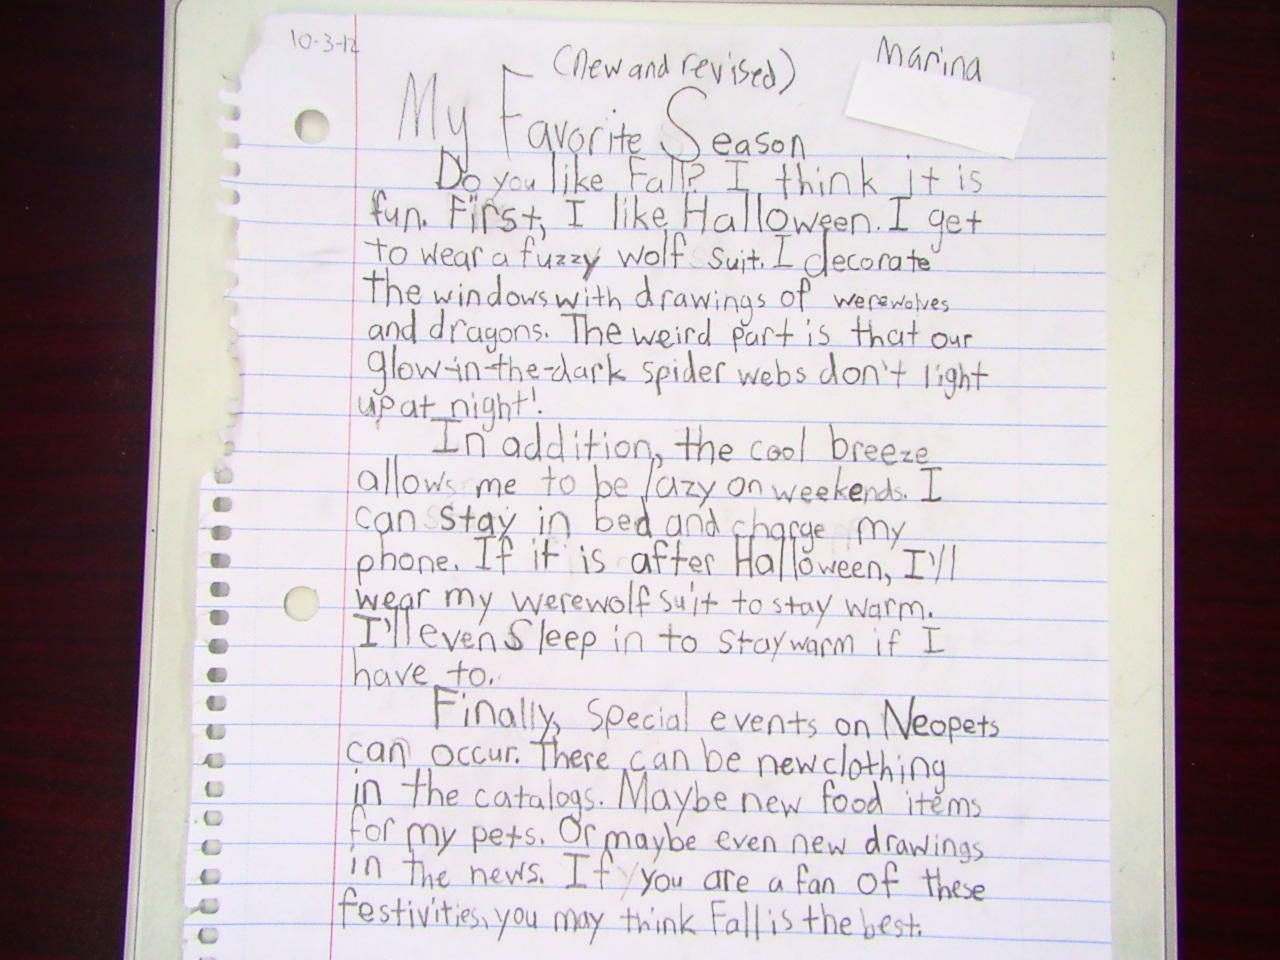 10-3-12
(new and revised)
Marina
My Favorite Season
Do you like Fall? I think it is
fun. First, I like Halloween. I get
to wear a fuzzy wolf suit. I decorate
the windows with drawings of werewolves
and dragons. The weird part is that our
glow-in-the-dark spider webs don't light
up at night!
In addition, the cool breeze
allows me to be lazy on weekends. I
can stay in bed and charge my
phone. If it is after Halloween, I'll
wear my werewolf suit to stay warm.
I'll even Sleep in to stay warm if I
have to.
Finally, special events on Neopets
can occur. There can be new clothing
in the catalogs. Maybe new food items
for my pets. Or maybe even new drawings
in the news. If you are a fan of these
festivities, you may think Fall is the best.